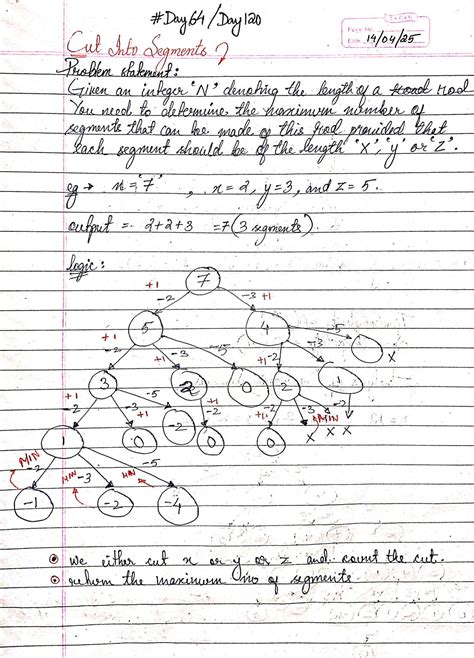 #Day64/Day120
Page No.
Date 19/04/25
Cut Into Segments ?
Problem statement:
Given an integer 'N' denoting the length of a rod
You need to determine the maximum number of
segments that can be made of this rod provided that
each segment should be of the length 'x', 'y' or 'z'.
eg → n = '7' , x = 2, y = 3, and z = 5.
output = 2+2+3 = 7 (3 segments).
logic:
7
+1 -2 -3 +1
5 4 -5
+1 -2 -3 -5 +1 -2 x
3 2 0 2 1
+1 -2 -3 -5 +1 -2 +1 -2 -3 MIN -2
1 0 -2 0 0 x x x
MIN -2 MIN -3 MIN -5
-1 -2 -4
we either cut x or y or z and count the cut.
return the maximum no of segments